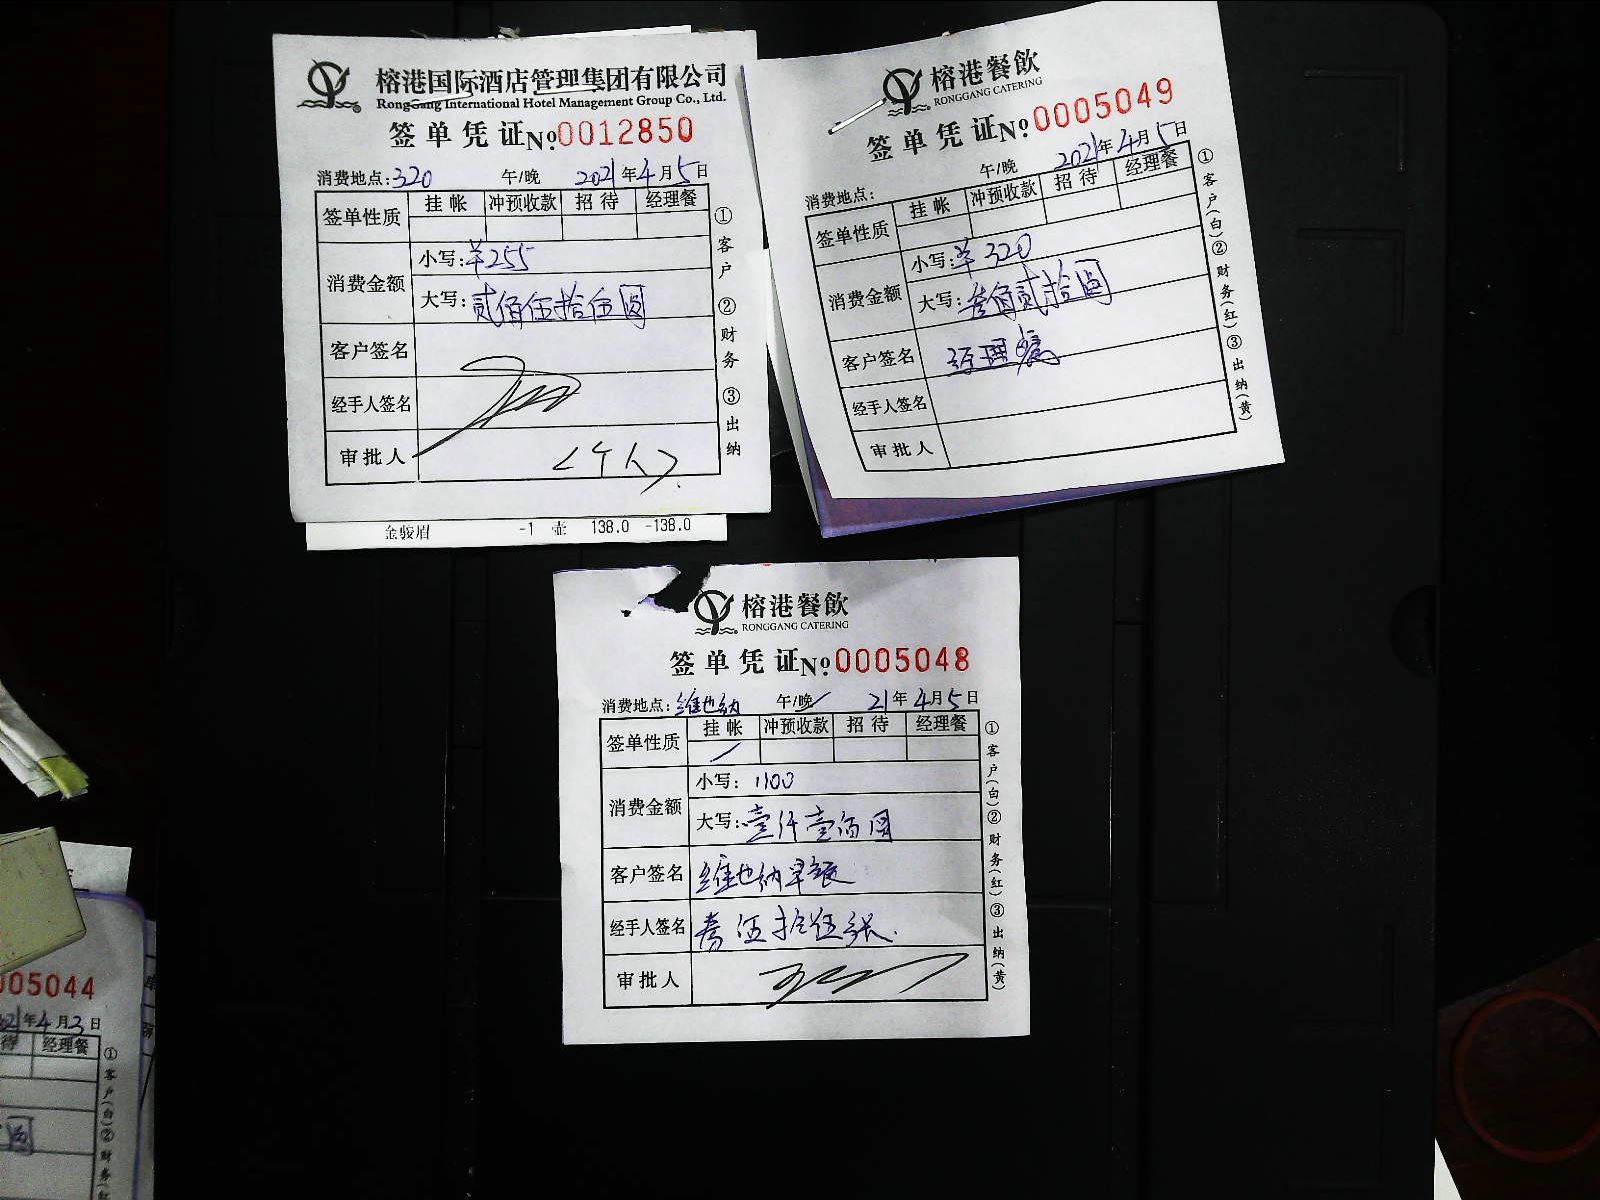 榕港国际酒店管理集团有限公司
RongGang International Hotel Management Group Co., Ltd.
签单凭证№0012850
消费地点:320 午/晚 2021年4月5日
签单性质 挂帐 冲预收款 招待 经理餐
消费金额
小写:¥255
大写:贰佰伍拾伍圆
客户签名
经手人签名
审批人 <4人>
①客户 ②财务 ③出纳
金骏眉 -1 壶 138.0 -138.0
榕港餐飲
RONGGANG CATERING
签单凭证№0005049
消费地点: 午/晚 2021年4月5日
签单性质 挂帐 冲预收款 招待 经理餐
消费金额
小写:¥320
大写:叁佰贰拾圆
客户签名 经理餐
经手人签名
审批人
①客户(白)②财务(红)③出纳(黄)
榕港餐飲
RONGGANG CATERING
签单凭证№0005048
消费地点:维也纳 午/晚 21年4月5日
签单性质 挂帐 冲预收款 招待 经理餐
消费金额
小写:1100
大写:壹仟壹佰圆
客户签名 维也纳早餐
经手人签名 券伍拾伍张.
审批人
①客户(白)②财务(红)③出纳(黄)
005044
21年4月3日
待 经理餐
圆
①客户(白)②财务(红